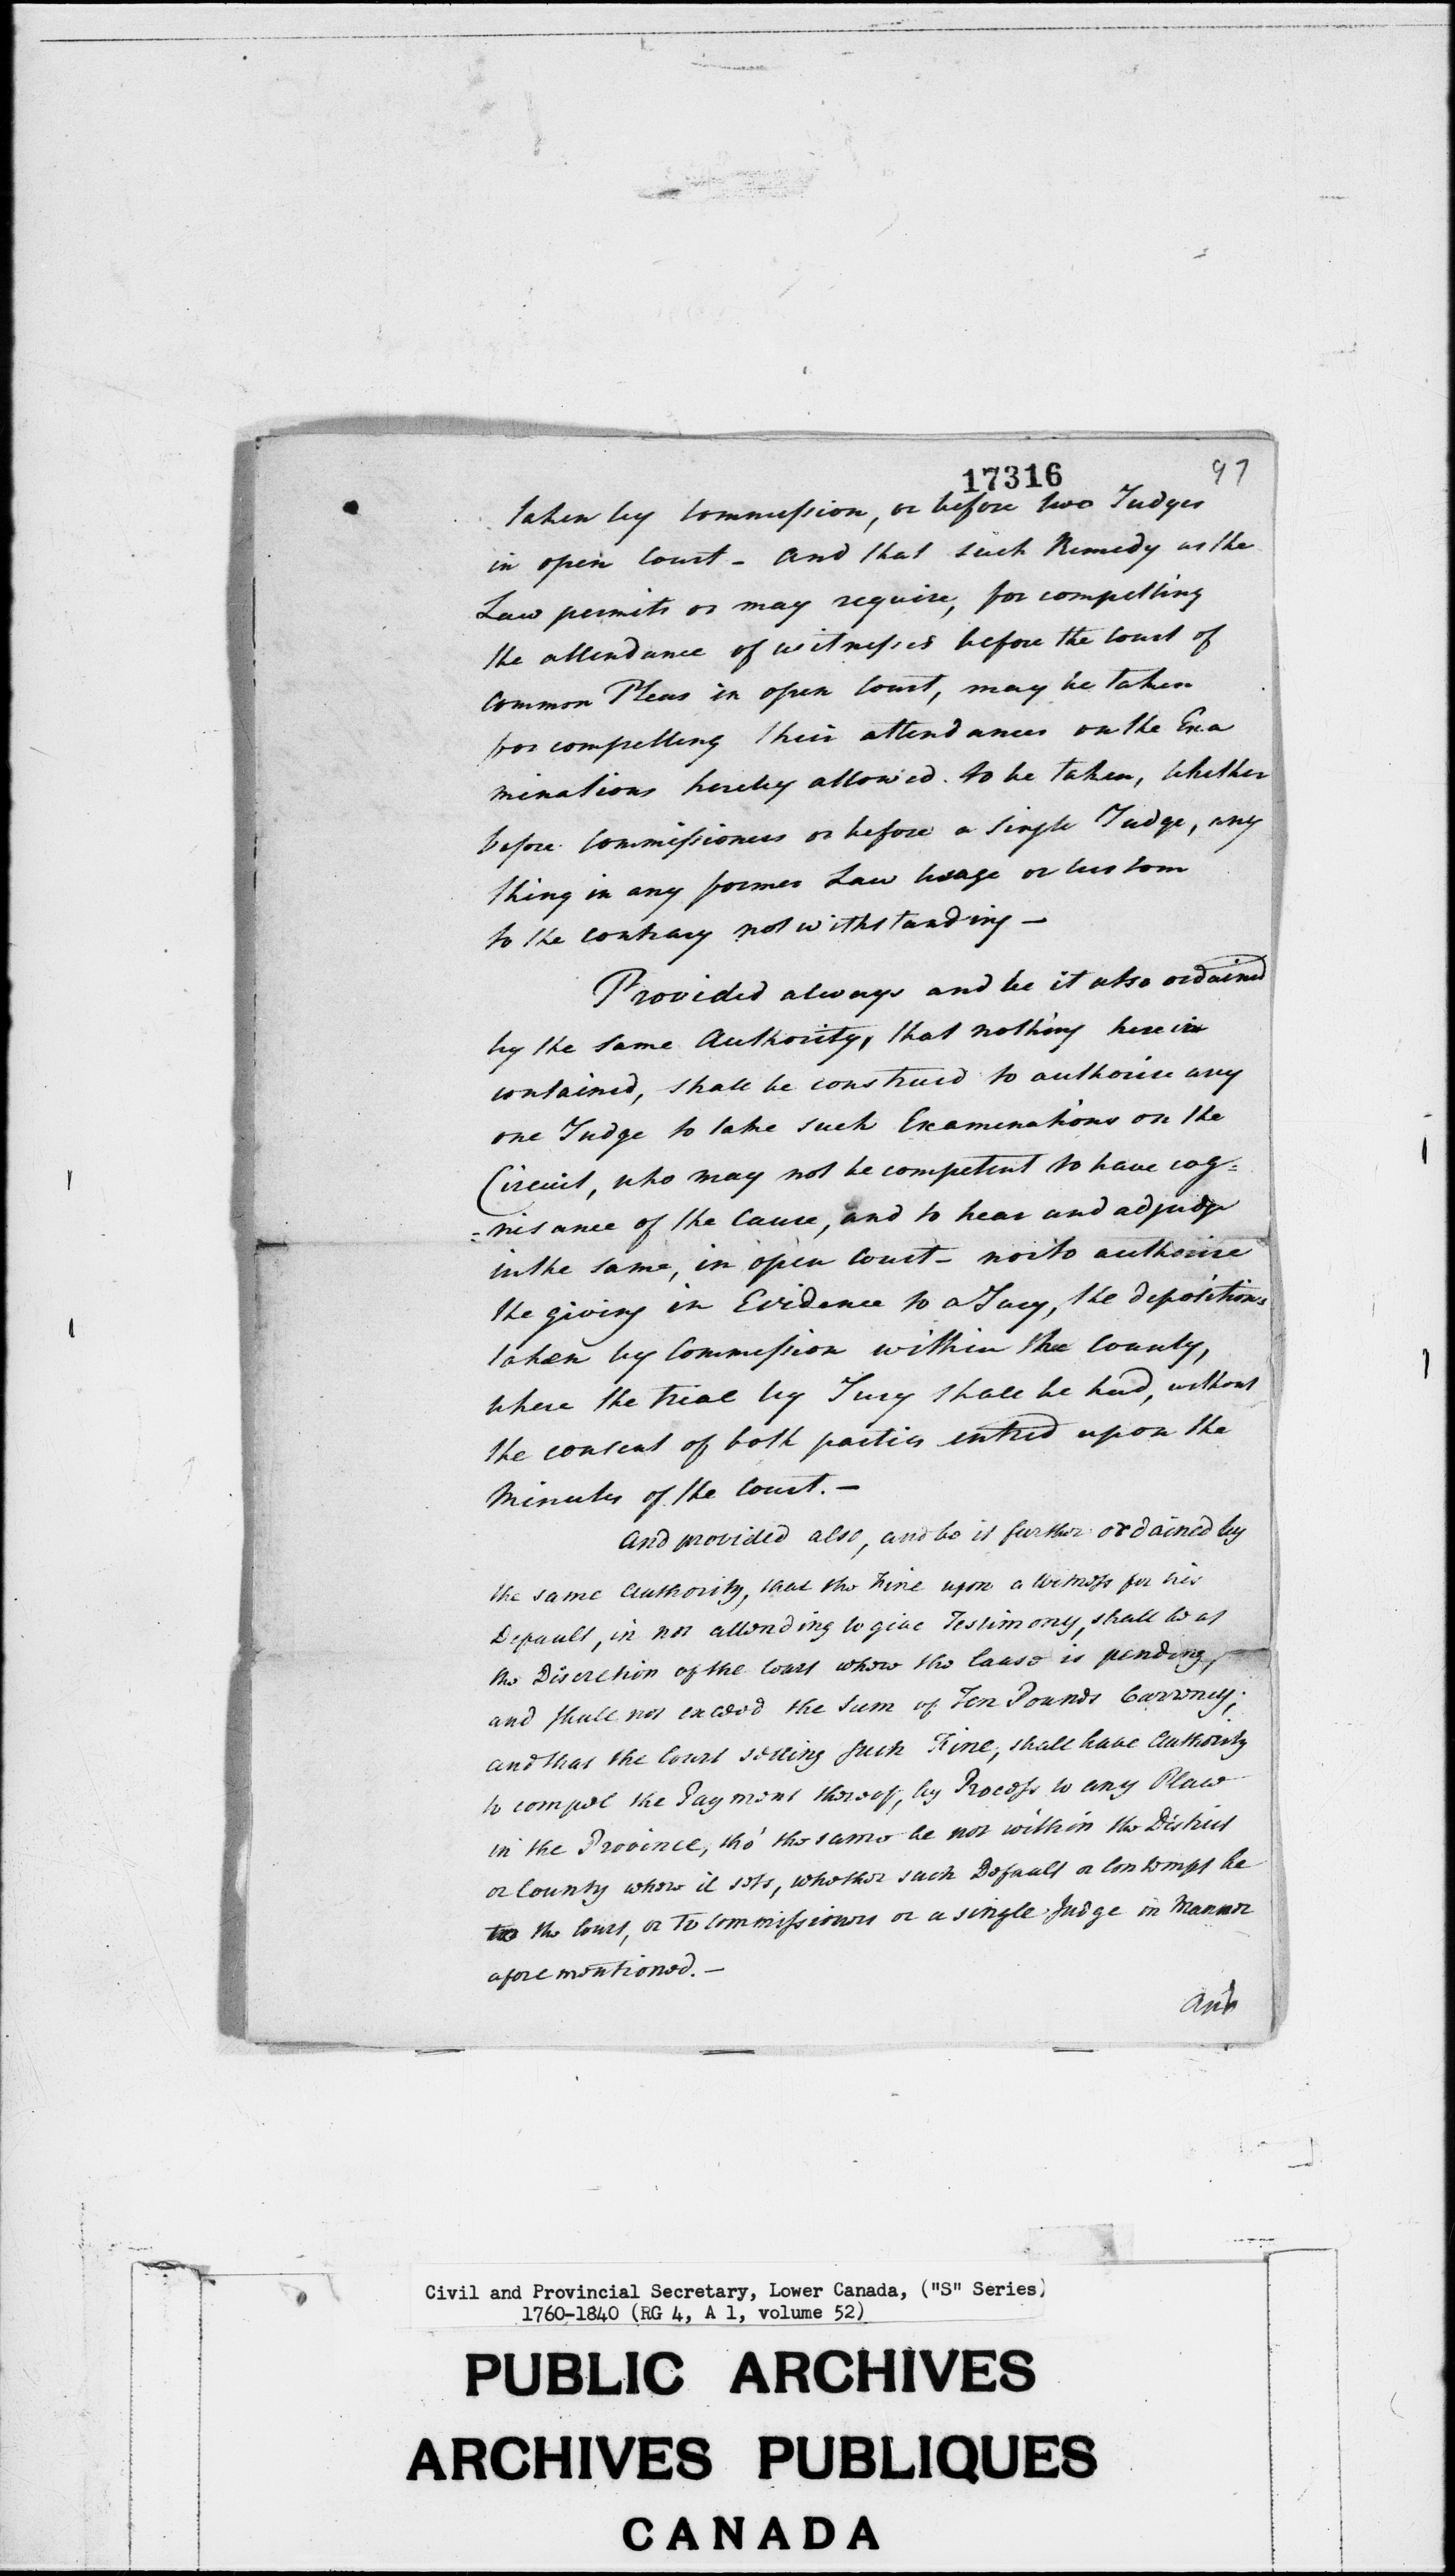 17316
97
taken by Commission, or before two Judges
in open Court - And that such Remedy as the
Law permits or may require, for compelling
the attendance of witnesses before the Court of
Common Pleas in open Court, may be taken
for compelling their attendances on the Exa
minations hereby allowed to be taken, whether
before Commissioners or before a Single Judge, any
thing in any former Law usage or custom
to the contrary notwithstanding -
Provided always and be it also ordained
by the same Authority, that nothing herein
contained, shall be construed to authorise any
one Judge to take such Examinations on the
Circuit, who may not be competent to have cog=
=nisance of the Cause, and to hear and adjudge
in the same, in open Court - nor to authorise
the giving in Evidence to a Jury, the depositions
taken by Commission within the County,
where the trial by Jury shall be had, without
the consent of both parties entred upon the
Minutes of the Court. -
And provided also, and be it further ordained by
the same Authority, that the Fine upon a Witness for his
Default, in not attending to give Testimony, shall be at
the Discretion of the Court where the Cause is pending,
and shall not exceed the Sum of Ten Pounds Currency;
and that the Court setting such Fine, shall have Authority
to compel the Payment thereof, by Process to any Place
in the Province, tho' the same be not within the District
or County where it sets, whether such Default or Contempt be
to the Court, or to Commissioners or a single Judge in Manner
aforementioned. -
And
Civil and Provincial Secretary, Lower Canada, ("S" Series)
1760-1840 (RG 4, A 1, volume 52)
PUBLIC ARCHIVES
ARCHIVES PUBLIQUES
CANADA